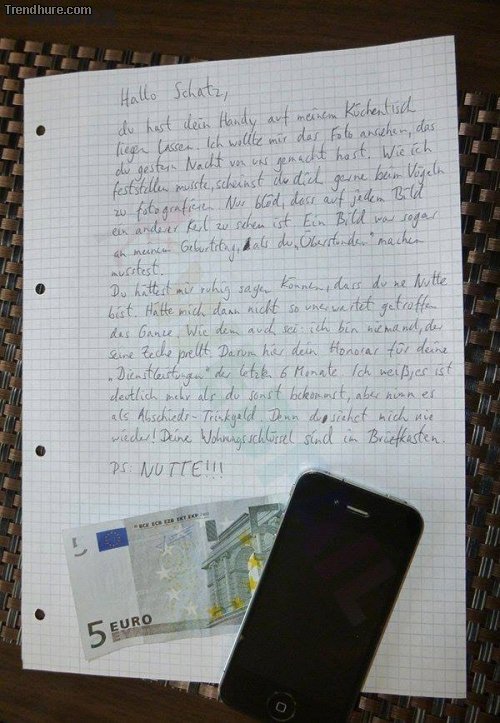 Trendhure.com
Hallo Schatz,
du hast dein Handy auf meinem Küchentisch
liegen lassen. Ich wollte mir das Foto ansehen, das
du gestern Nacht von uns gemacht hast. Wie ich
feststellen musste, scheinst du dich gerne beim Vögeln
zu fotografieren. Nur blöd, dass auf jedem Bild
ein anderer Kerl zu sehen ist. Ein Bild war sogar
an meinem Geburtstag, als du „Überstunden" machen
musstest.
Du hättest mir ruhig sagen können, dass du ne Nutte
bist. Hätte mich dann nicht so unerwartet getroffen
das Ganze. Wie dem auch sei: ich bin niemand, der
seine Zeche prellt. Darum hier dein Honorar für deine
„Dienstleistungen" der letzten 6 Monate. Ich weiß, es ist
deutlich mehr als du sonst bekommst, aber nimm es
als Abschieds-Trinkgeld. Denn du siehst mich nie
wieder! Deine Wohnungsschlüssel sind im Briefkasten.
PS: NUTTE!!!
BCE ECB EZB EKT EKP
5 EURO